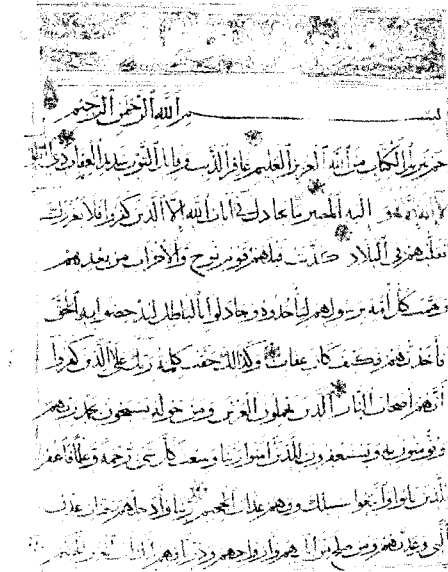 بسم الله الرحمن الرحيم
حم تنزيل الكتاب من الله العزيز العليم غافر الذنب وقابل التوب شديد العقاب ذي الطول
لا إله إلا هو إليه المصير ما يجادل في آيات الله إلا الذين كفروا فلا يغررك
تقلبهم في البلاد كذبت قبلهم قوم نوح والأحزاب من بعدهم
وهمت كل أمة برسولهم ليأخذوه وجادلوا بالباطل ليدحضوا به الحق
فأخذتهم فكيف كان عقاب وكذلك حقت كلمة ربك على الذين كفروا
أنهم أصحاب النار الذين يحملون العرش ومن حوله يسبحون بحمد ربهم
ويؤمنون به ويستغفرون للذين آمنوا ربنا وسعت كل شيء رحمة وعلما فاغفر
للذين تابوا واتبعوا سبيلك وقهم عذاب الجحيم ربنا وأدخلهم جنات عدن
التي وعدتهم ومن صلح من آبائهم وأزواجهم وذرياتهم إنك أنت العزيز الحكيم